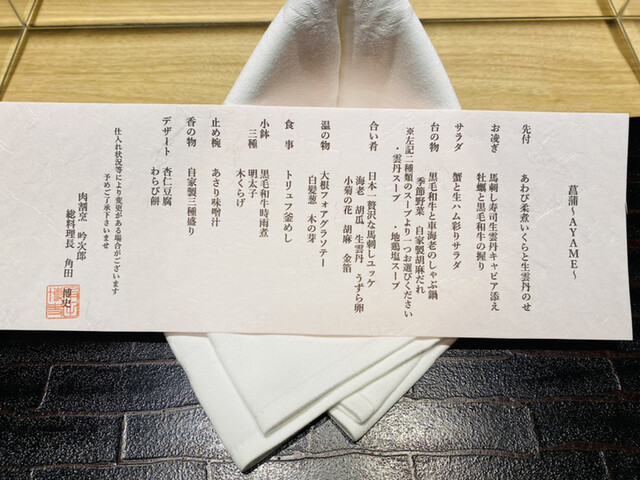 菖蒲～AYAME～
先付　あわび柔煮いくらと生雲丹のせ
お凌ぎ　馬刺し寿司生雲丹キャビア添え
牡蠣と黒毛和牛の握り
サラダ　蟹と生ハム彩りサラダ
台の物　黒毛和牛と車海老のしゃぶ鍋
季節野菜　自家製胡麻だれ
※左記二種類のスープより一つお選びください
・雲丹スープ　・地鶏塩スープ
合い肴　日本一贅沢な馬刺しユッケ
海老　胡瓜　生雲丹　うずら卵
小菊の花　胡麻　金箔
温の物　大根フォアグラソテー
白髪葱　木の芽
食事　トリュフ釜めし
小鉢三種　黒毛和牛時雨煮
明太子
木くらげ
止め椀　あさり味噌汁
香の物　自家製三種盛り
デザート　杏仁豆腐
わらび餅
仕入れ状況等により変更がある場合がございます
予めご了承下さいませ
肉割烹　吟次郎
総料理長　角田　博史